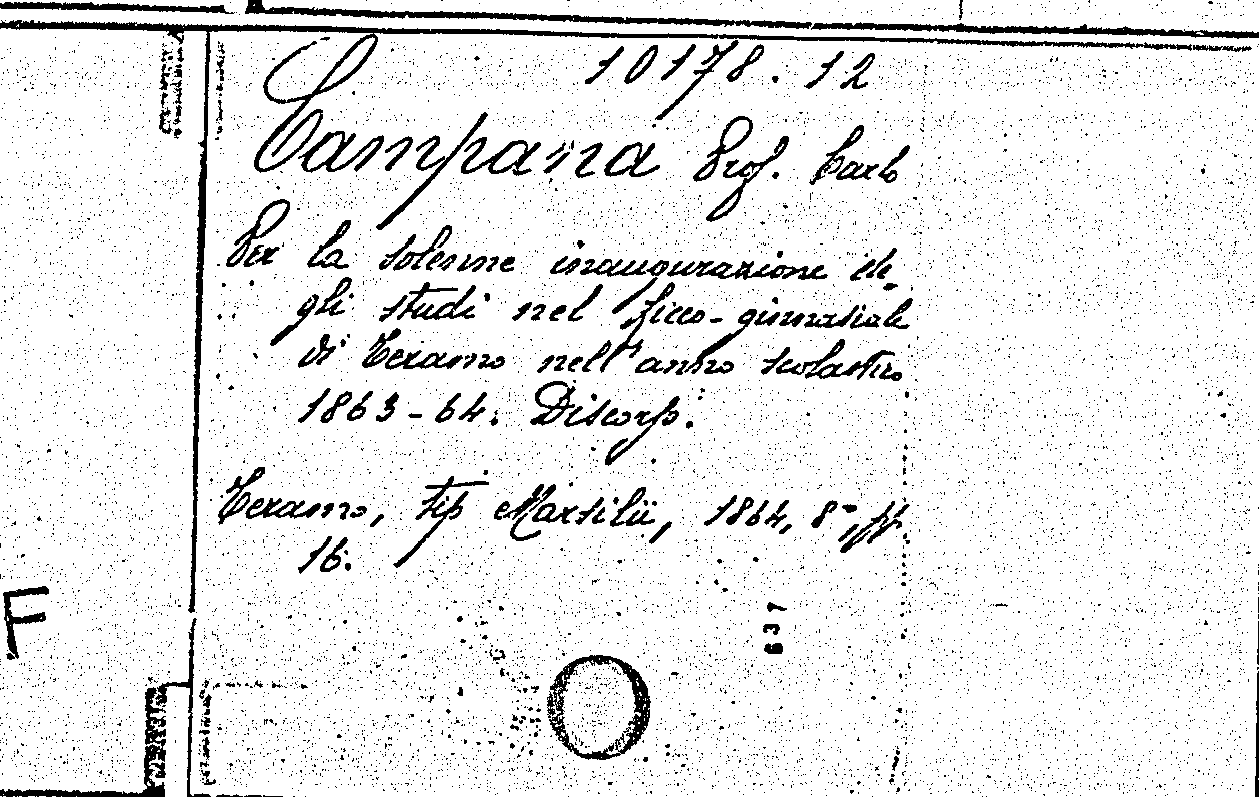 10178.12
Campana Prof. Carlo
Per la solenne inaugurazione de-
gli studi nel Liceo-ginnasiale
di Teramo nell'anno scolastico
1863-64. Discorso.
Teramo, tip Marsilii, 1864, 8°, pp
16.
637
F